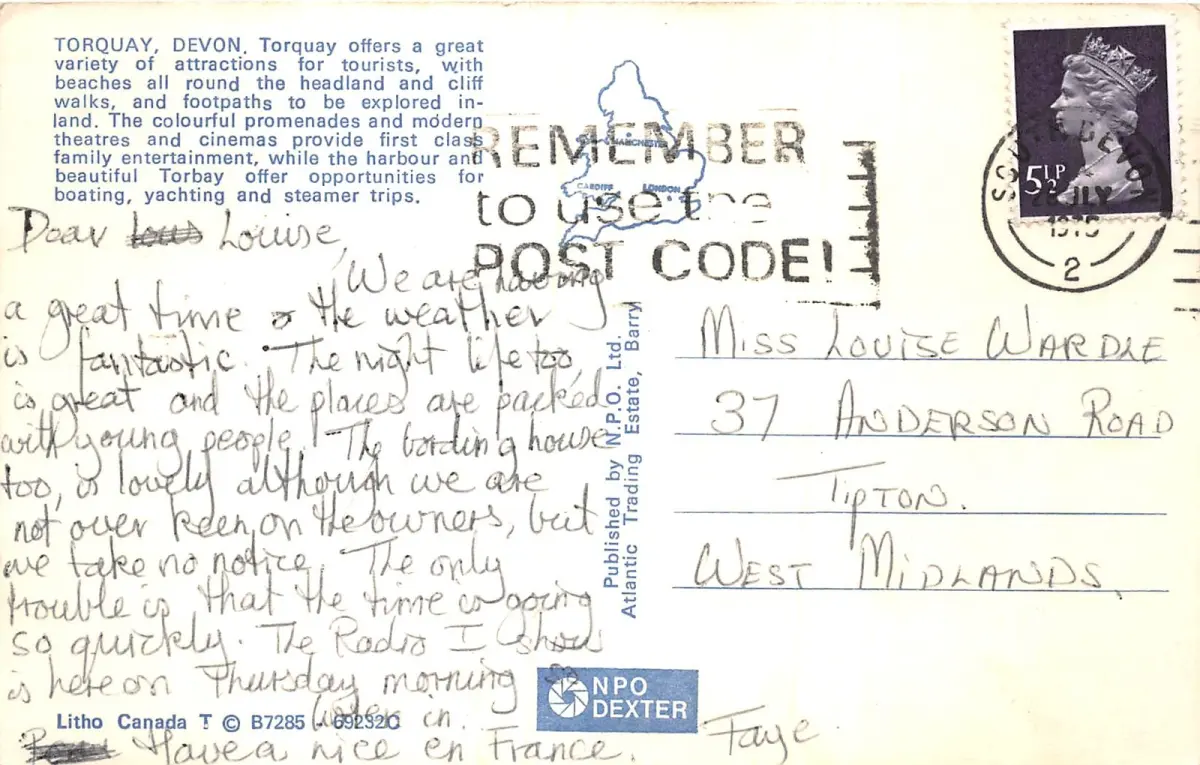 TORQUAY, DEVON. Torquay offers a great
variety of attractions for tourists, with
beaches all round the headland and cliff
walks, and footpaths to be explored in-
land. The colourful promenades and modern
theatres and cinemas provide first class
family entertainment, while the harbour and
beautiful Torbay offer opportunities for
boating, yachting and steamer trips.
MANCHESTER
CARDIFF LONDON
REMEMBER
to use the
POST CODE!
5½P
DEVON
JLY
1975
2
Dear Louise,
We are having
a great time & the weather
is fantastic. The night life too,
is great and the places are packed
with young people. The bording house
too, is lovely although we are
not over keen on the owners, but
we take no notice. The only
trouble is that the time is going
so quickly. The Radio I show
is here on Thursday morning so
listen in.
Have a nice en France.
Faye
Miss Louise Wardle
37 Anderson Road
Tipton.
West Midlands.
Published by N.P.O. Ltd.
Atlantic Trading Estate, Barry
NPO
DEXTER
Litho Canada T © B7285 - 69232C